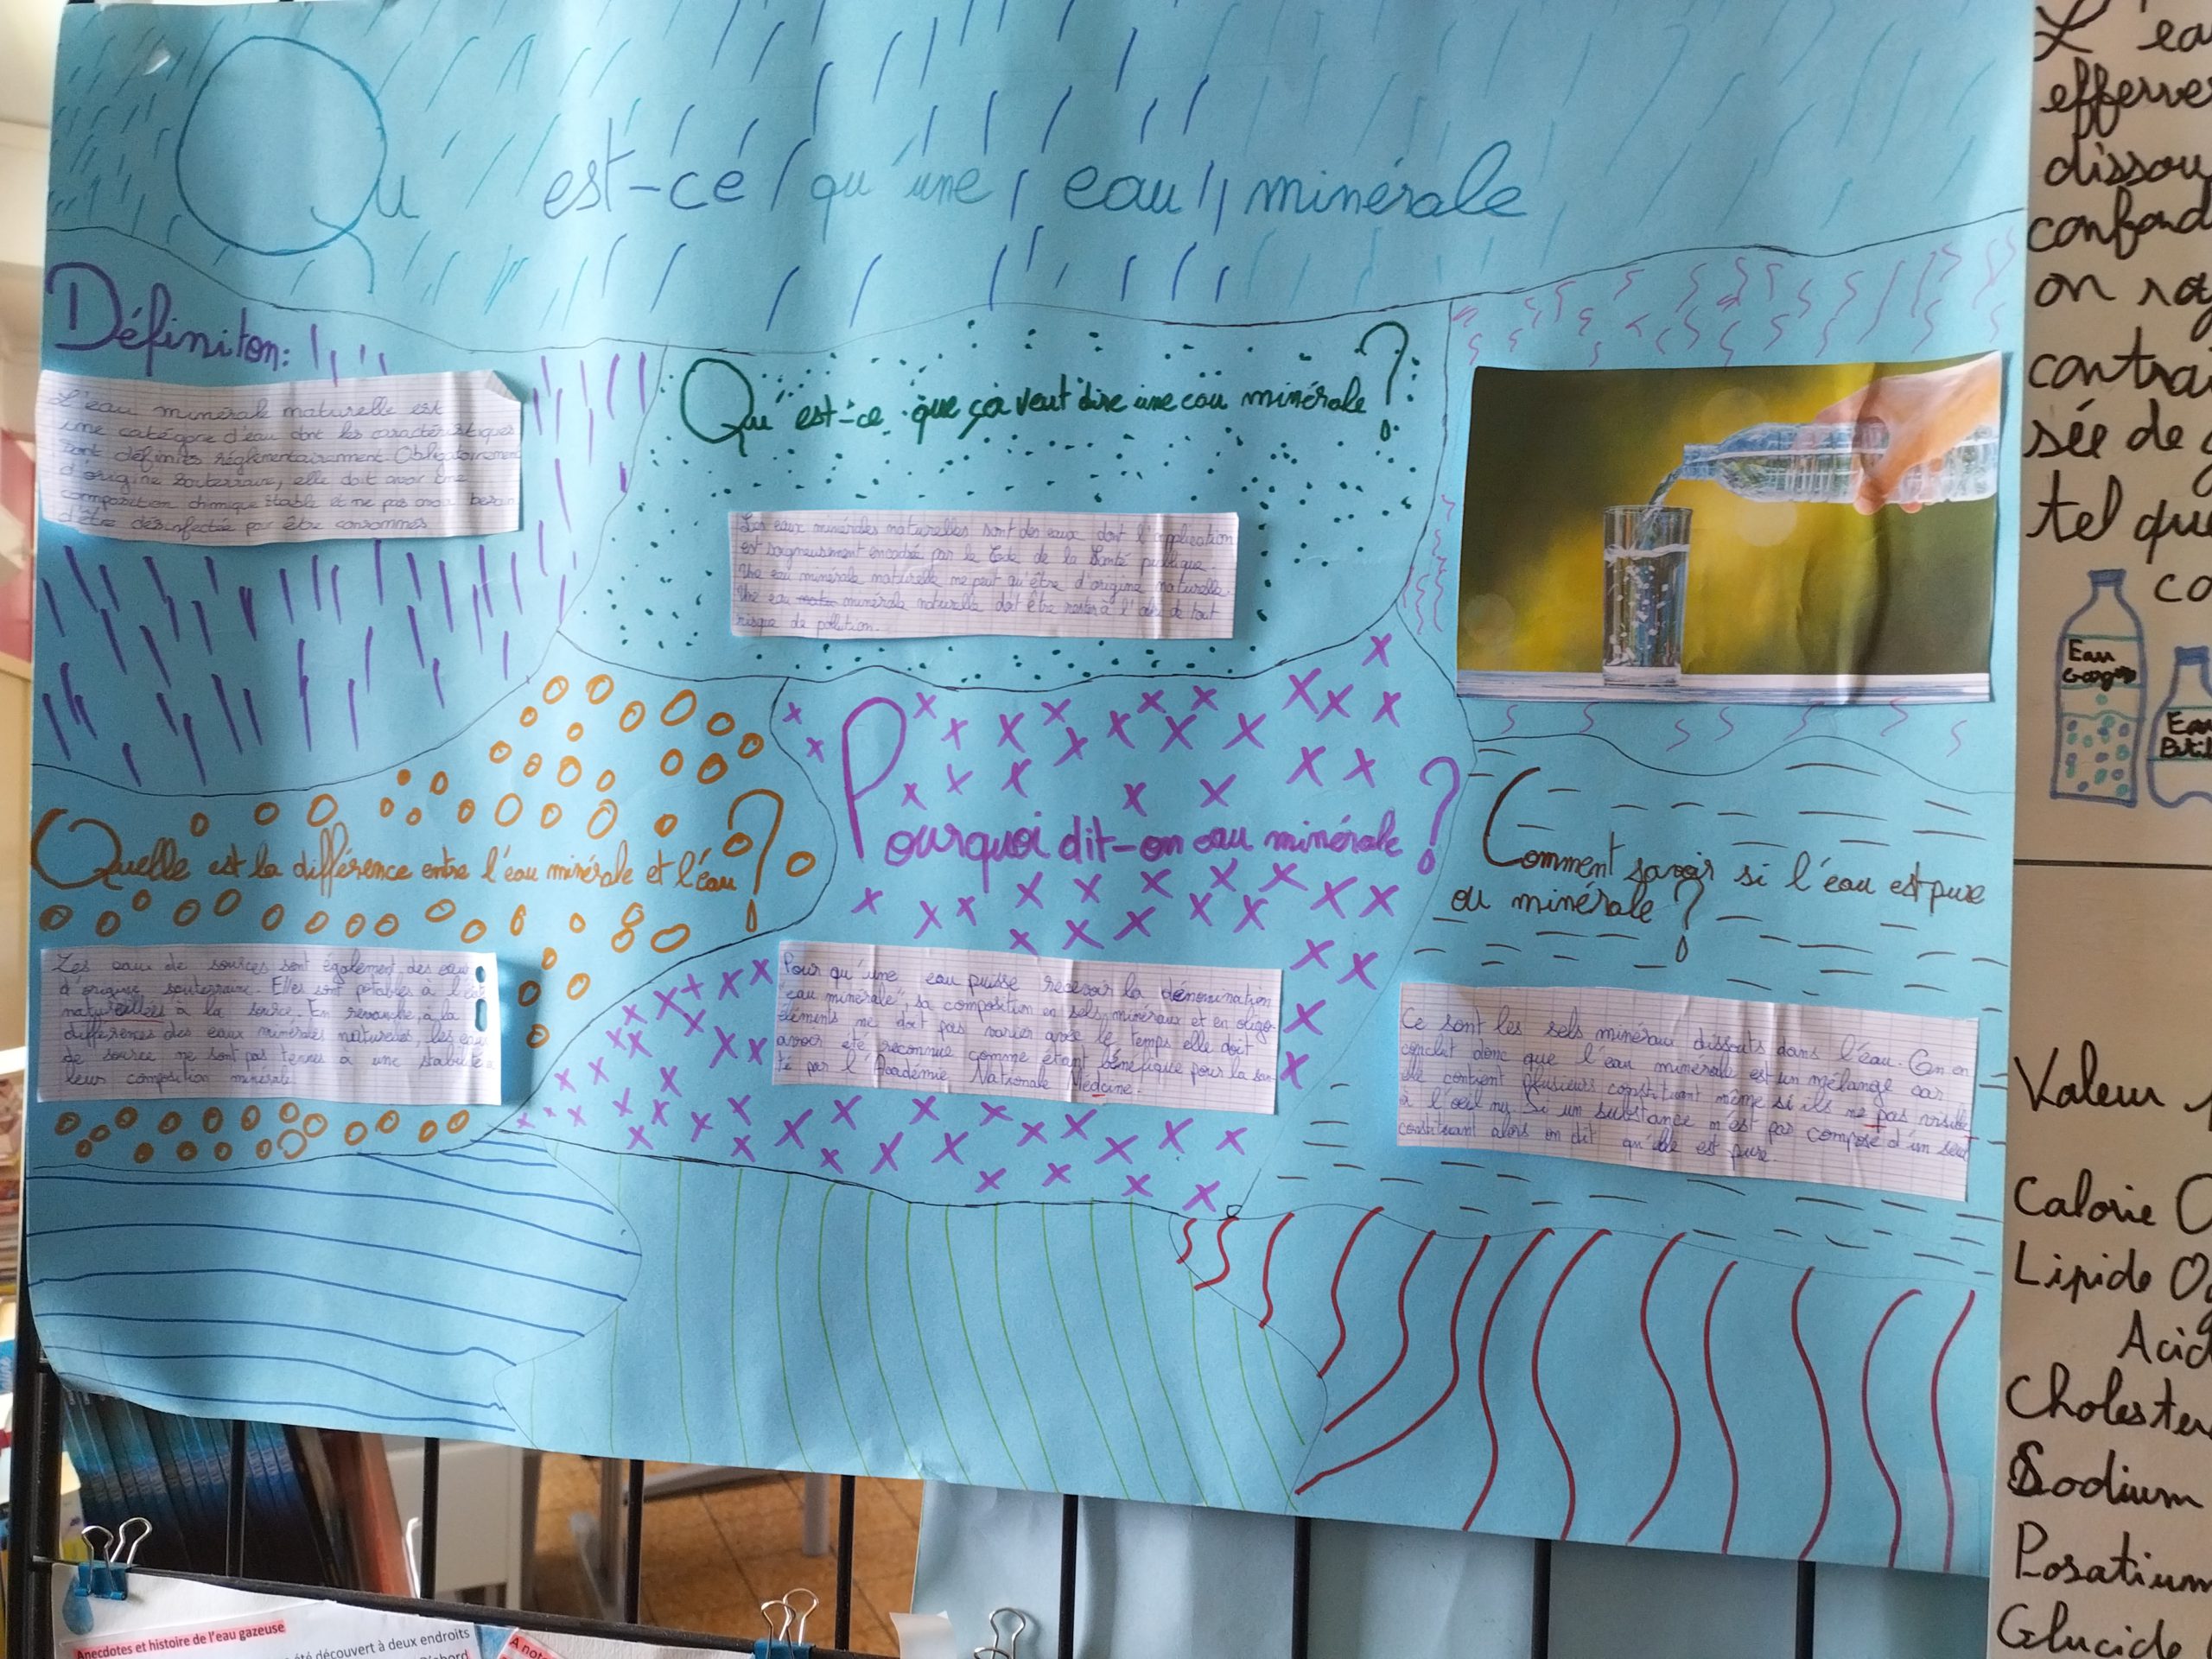 Qu est-ce qu'une eau minérale
Définiton:
L'eau minérale naturelle est
une catégore d'eau dont les caractéristiques
sont définies réglementairement. Obligatoirement
d'origine souterraine, elle doit avoir une
composition chimique stable et ne pas avoir besoin
d'être désinfectée pour être consommés
Qu'est-ce que ça veut dire une eau minérale ?
Les eaux minérales naturelles sont des eaux dont l'application
est soigneusement encadrée par le Code de la Santé publique.
Une eau minérale naturelle ne peut qu'être d'origine naturelle.
Une eau minérale naturelle doit être rester à l'abri de tout
risque de pollution.
Quelle est la différence entre l'éau minérale et l'éau ?
Les eaux de sources sont également des eau
d'origine souterraine. Elles sont potables à l'ét
naturelles à la source. En revanche, à la
différences des eaux minérales naturelles, les eau
de source ne sont pas tenues à une stabilité
leurs composition minérale
Pourquoi dit-on eau minérale ?
Pour qu'une eau puisse recevoir la dénomination
"eau minérale", sa composition en sels minéraux et en oligo-
éléments ne doit pas varier avec le temps elle doit
avoir été reconnue comme étant bénéfique pour la san-
té par l'Académie Nationale Médcine.
Comment savoir si l'éau est pure
ou minérale ?
Ce sont les sels minéraux dissouts dans l'eau. On en
conclut donc que l'eau minérale est un mélange car
elle contient plusieurs constituant même si ils ne pas visible
à l'oeil nu. Si un substance n'est pas composé d'un seul
constituant alors on dit qu'elle est pure.
L'ea
efferve
dissou
confond
on ra
contrai
sée de g
tel que
co
Eau
Eau
Valeur
Calorie
Lipide
Acid
Cholester
Sodium
Posatium
Glucide
Anecdotes et histoire de l'eau gazeuse
été découvert à deux endroits
A not